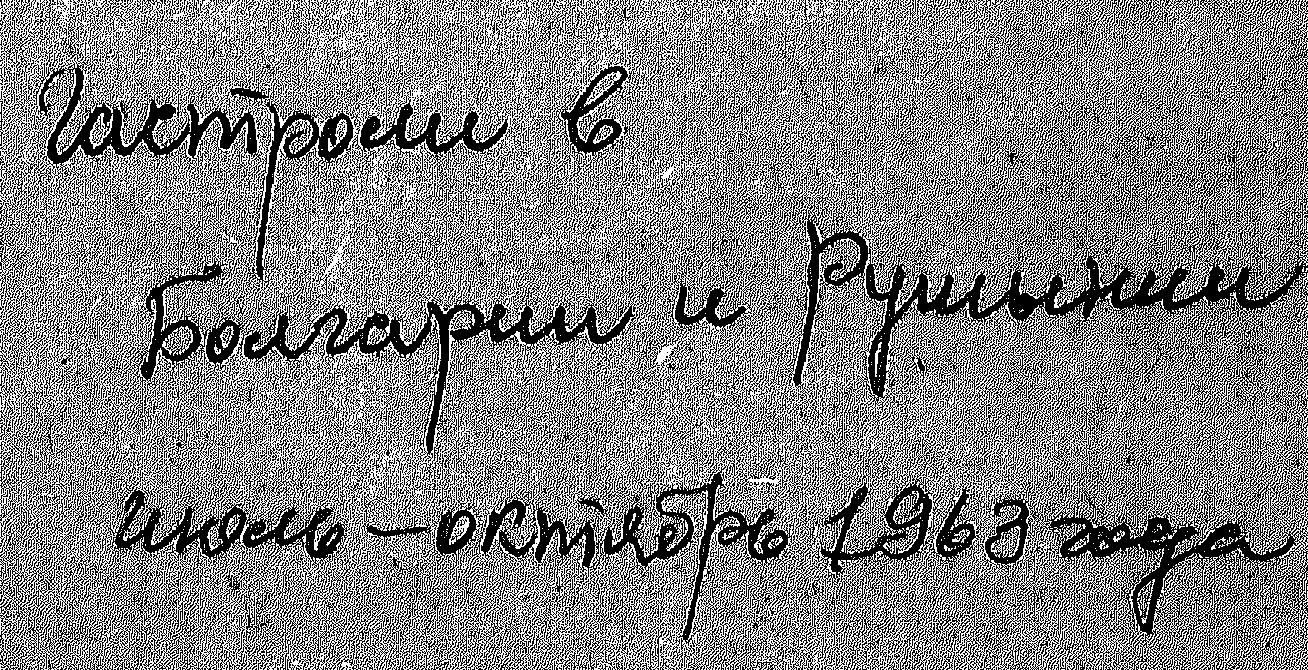 Гастроли в
Болгарии и Румынии
июль - октябрь 1963 года